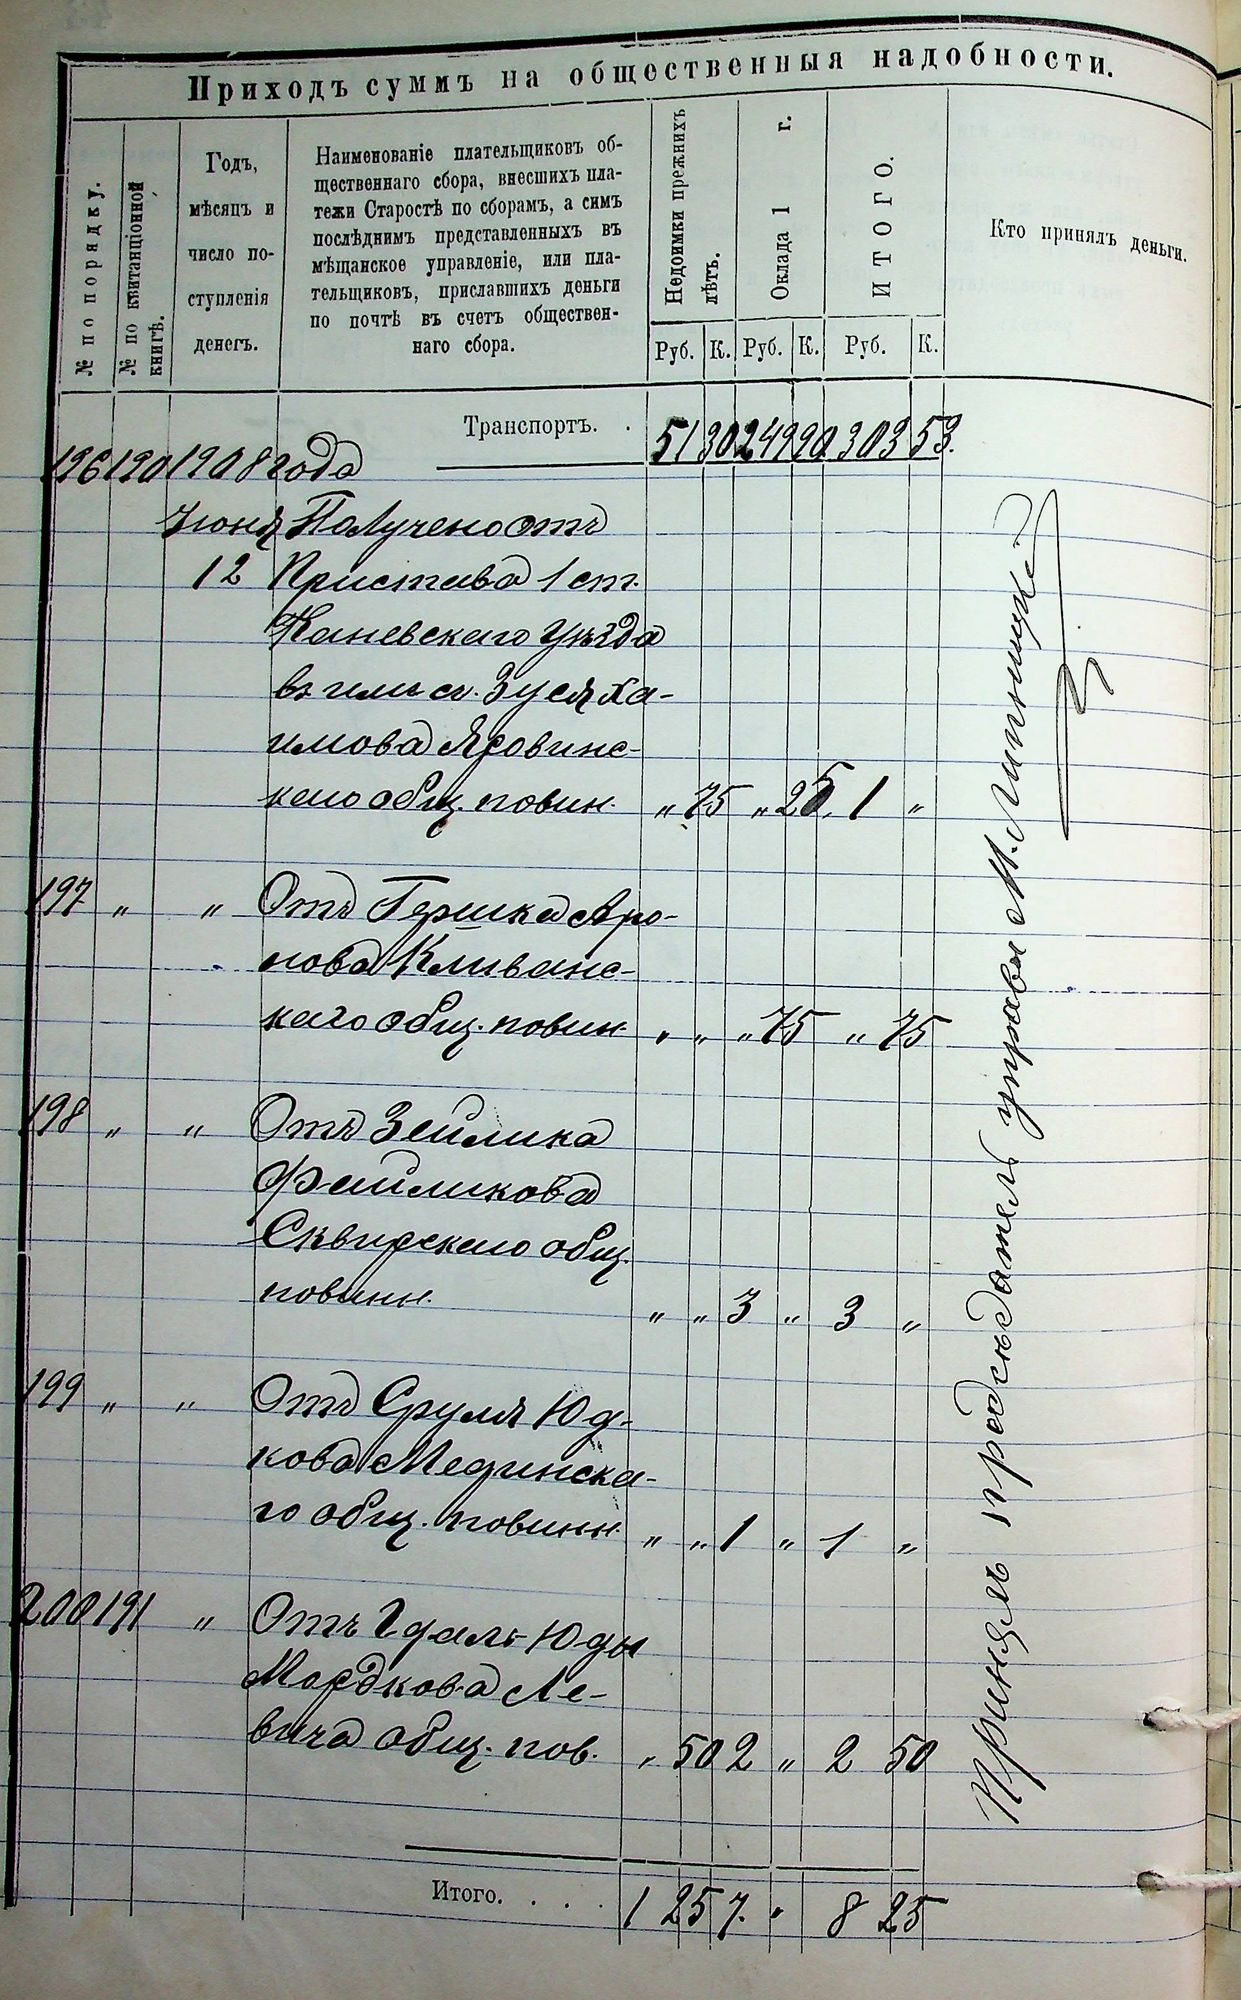 Приходъ суммъ на общественныя надобности.
№ по порядку.
№ по квитанціонной
книгѣ.
Годъ,
мѣсяцъ и
число по-
ступленія
денегъ.
Наименованіе плательщиковъ об-
щественнаго сбора, внесшихъ пла-
тежи Старостѣ по сборамъ, а симъ
послѣднимъ представленныхъ въ
мѣщанское управленіе, или пла-
тельщиковъ, приславшихъ деньги
по почтѣ въ счетъ обществен-
наго сбора.
Недоимки прежнихъ
лѣтъ.
Оклада 1 г.
ИТОГО.
Кто принялъ деньги.
Руб. К. Руб. К. Руб. К.
Транспортъ. . 51 30 249 90 303 53.
196 190 1908 года
Іюня Получено отъ
12 Пристава 1 ст.
Каневскаго уѣзда
Зуся Ха-
имова Яровинс-
каго общ. повин. „ 75 „ 25. 1 „
197 „ „ Отъ Гершка Аро-
нова Кливанс-
каго общ. повин. „ „ „ 75 „ 75
198 „ „ Отъ Зейлика
Файликова
Сквирскаго общ.
повинн. „ „ 3 „ 3 „
199 „ „ Отъ Сруля Юд-
кова Мединска-
го общ. повинн. „ „ 1 „ 1 „
200 191 „ Отъ Гдаль-Юды
Мордкова Ле-
вича общ. пов. „ 50 2 „ 2 50
Итого. . . . 1 25 7. „ 8 25
Принялъ предсѣдатель управы М. Липницкій